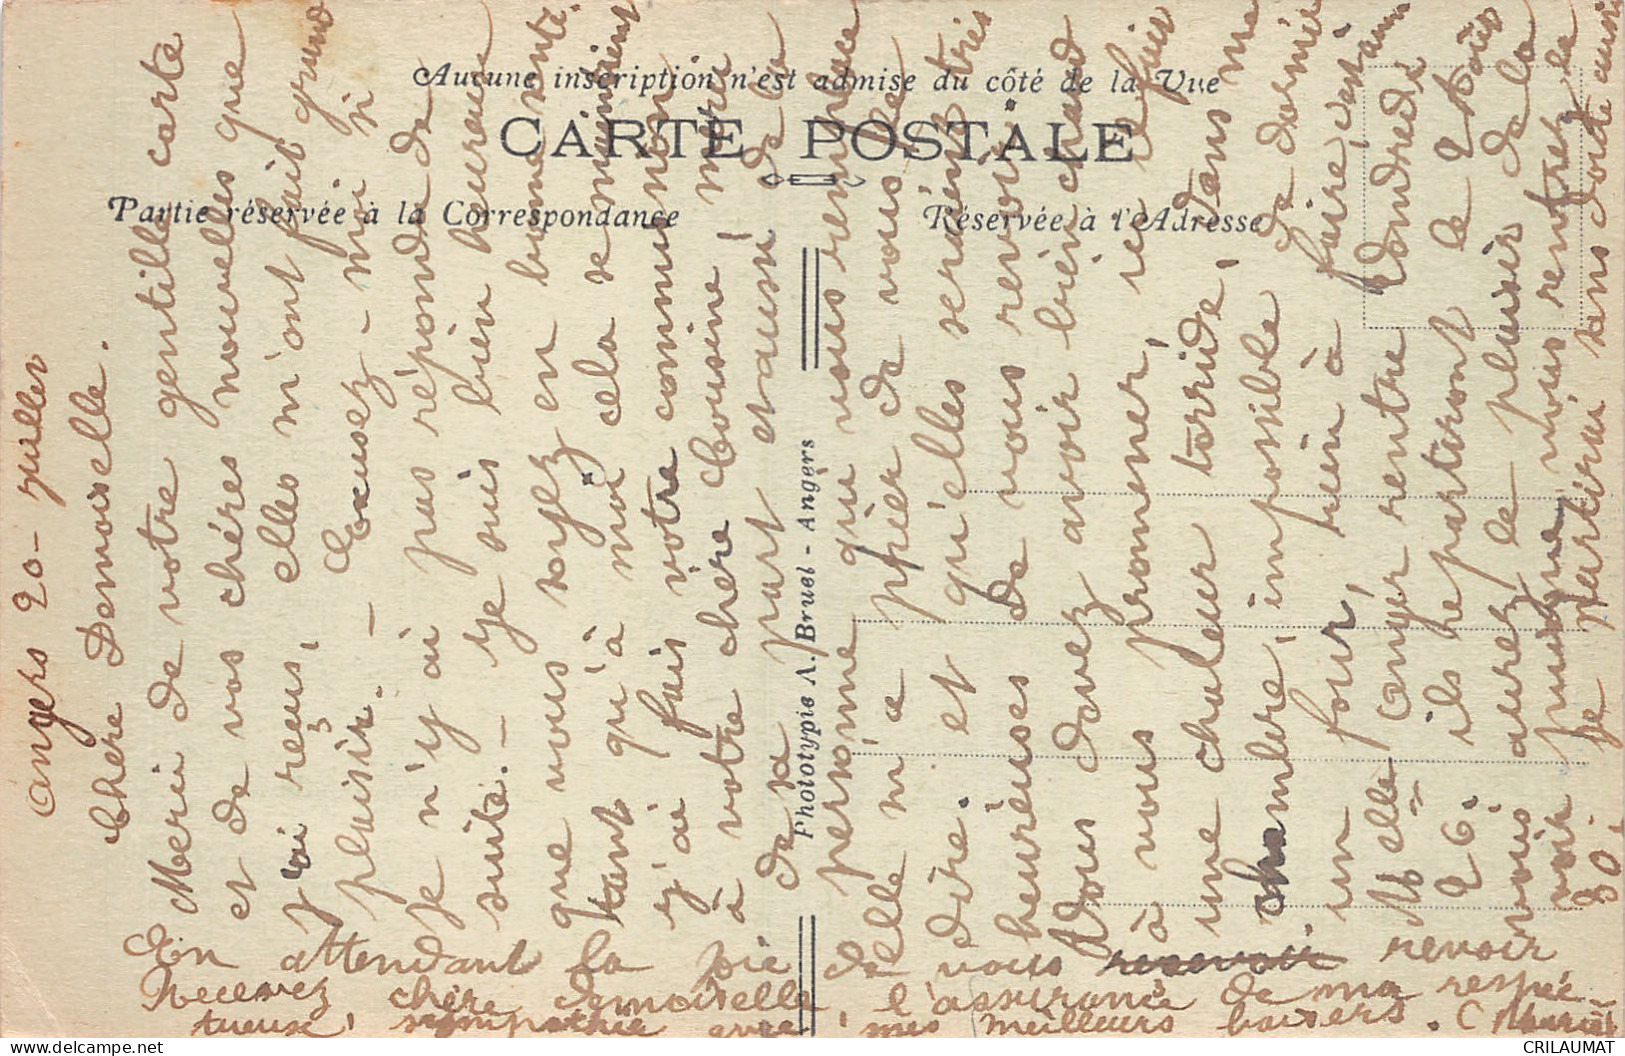 Aucune inscription n'est admise du côté de la Vue
CARTE POSTALE
Partie réservée à la Correspondance
Réservée à l'Adresse
Phototypie A. Bruel - Angers
Angers 20 - juillet
Chère Demoiselle.
Merci de votre gentille carte
et de vos chères nouvelles que
j'ai reçus, elles m'ont fait grand
plaisir. - Excusez - moi si
je n'y ai pas réponde de
suite. - Je suis bien heureuse
que vous soyez en bonne santé
tant qu'à moi cela se maintient
j'ai fais votre commission
à votre chère Cousine,
de sa part et aussi de la
personne qui vous remercie
elle m'a prier de vous le
dire. et qu'elles seraient très
heureuses de vous revoir.
Vous devez avoir bien chaud
à vous promener, ici il fais
une chaleur torride, dans ma
chambre, impossible de dormir
un four, rien à faire,
Melle Anger rentre Vendredi
26. ils repartiront le 2 Août
vous aurez le plaisir de la
voir puisque vous rentrez la
30. je partirai sans doute aussi
En attendant la joie de vous revoir
Recevez chère demoiselle, l'assurance de ma respec-
tueuse sympathie avec mes meilleurs baisers.
CRILAUMAT